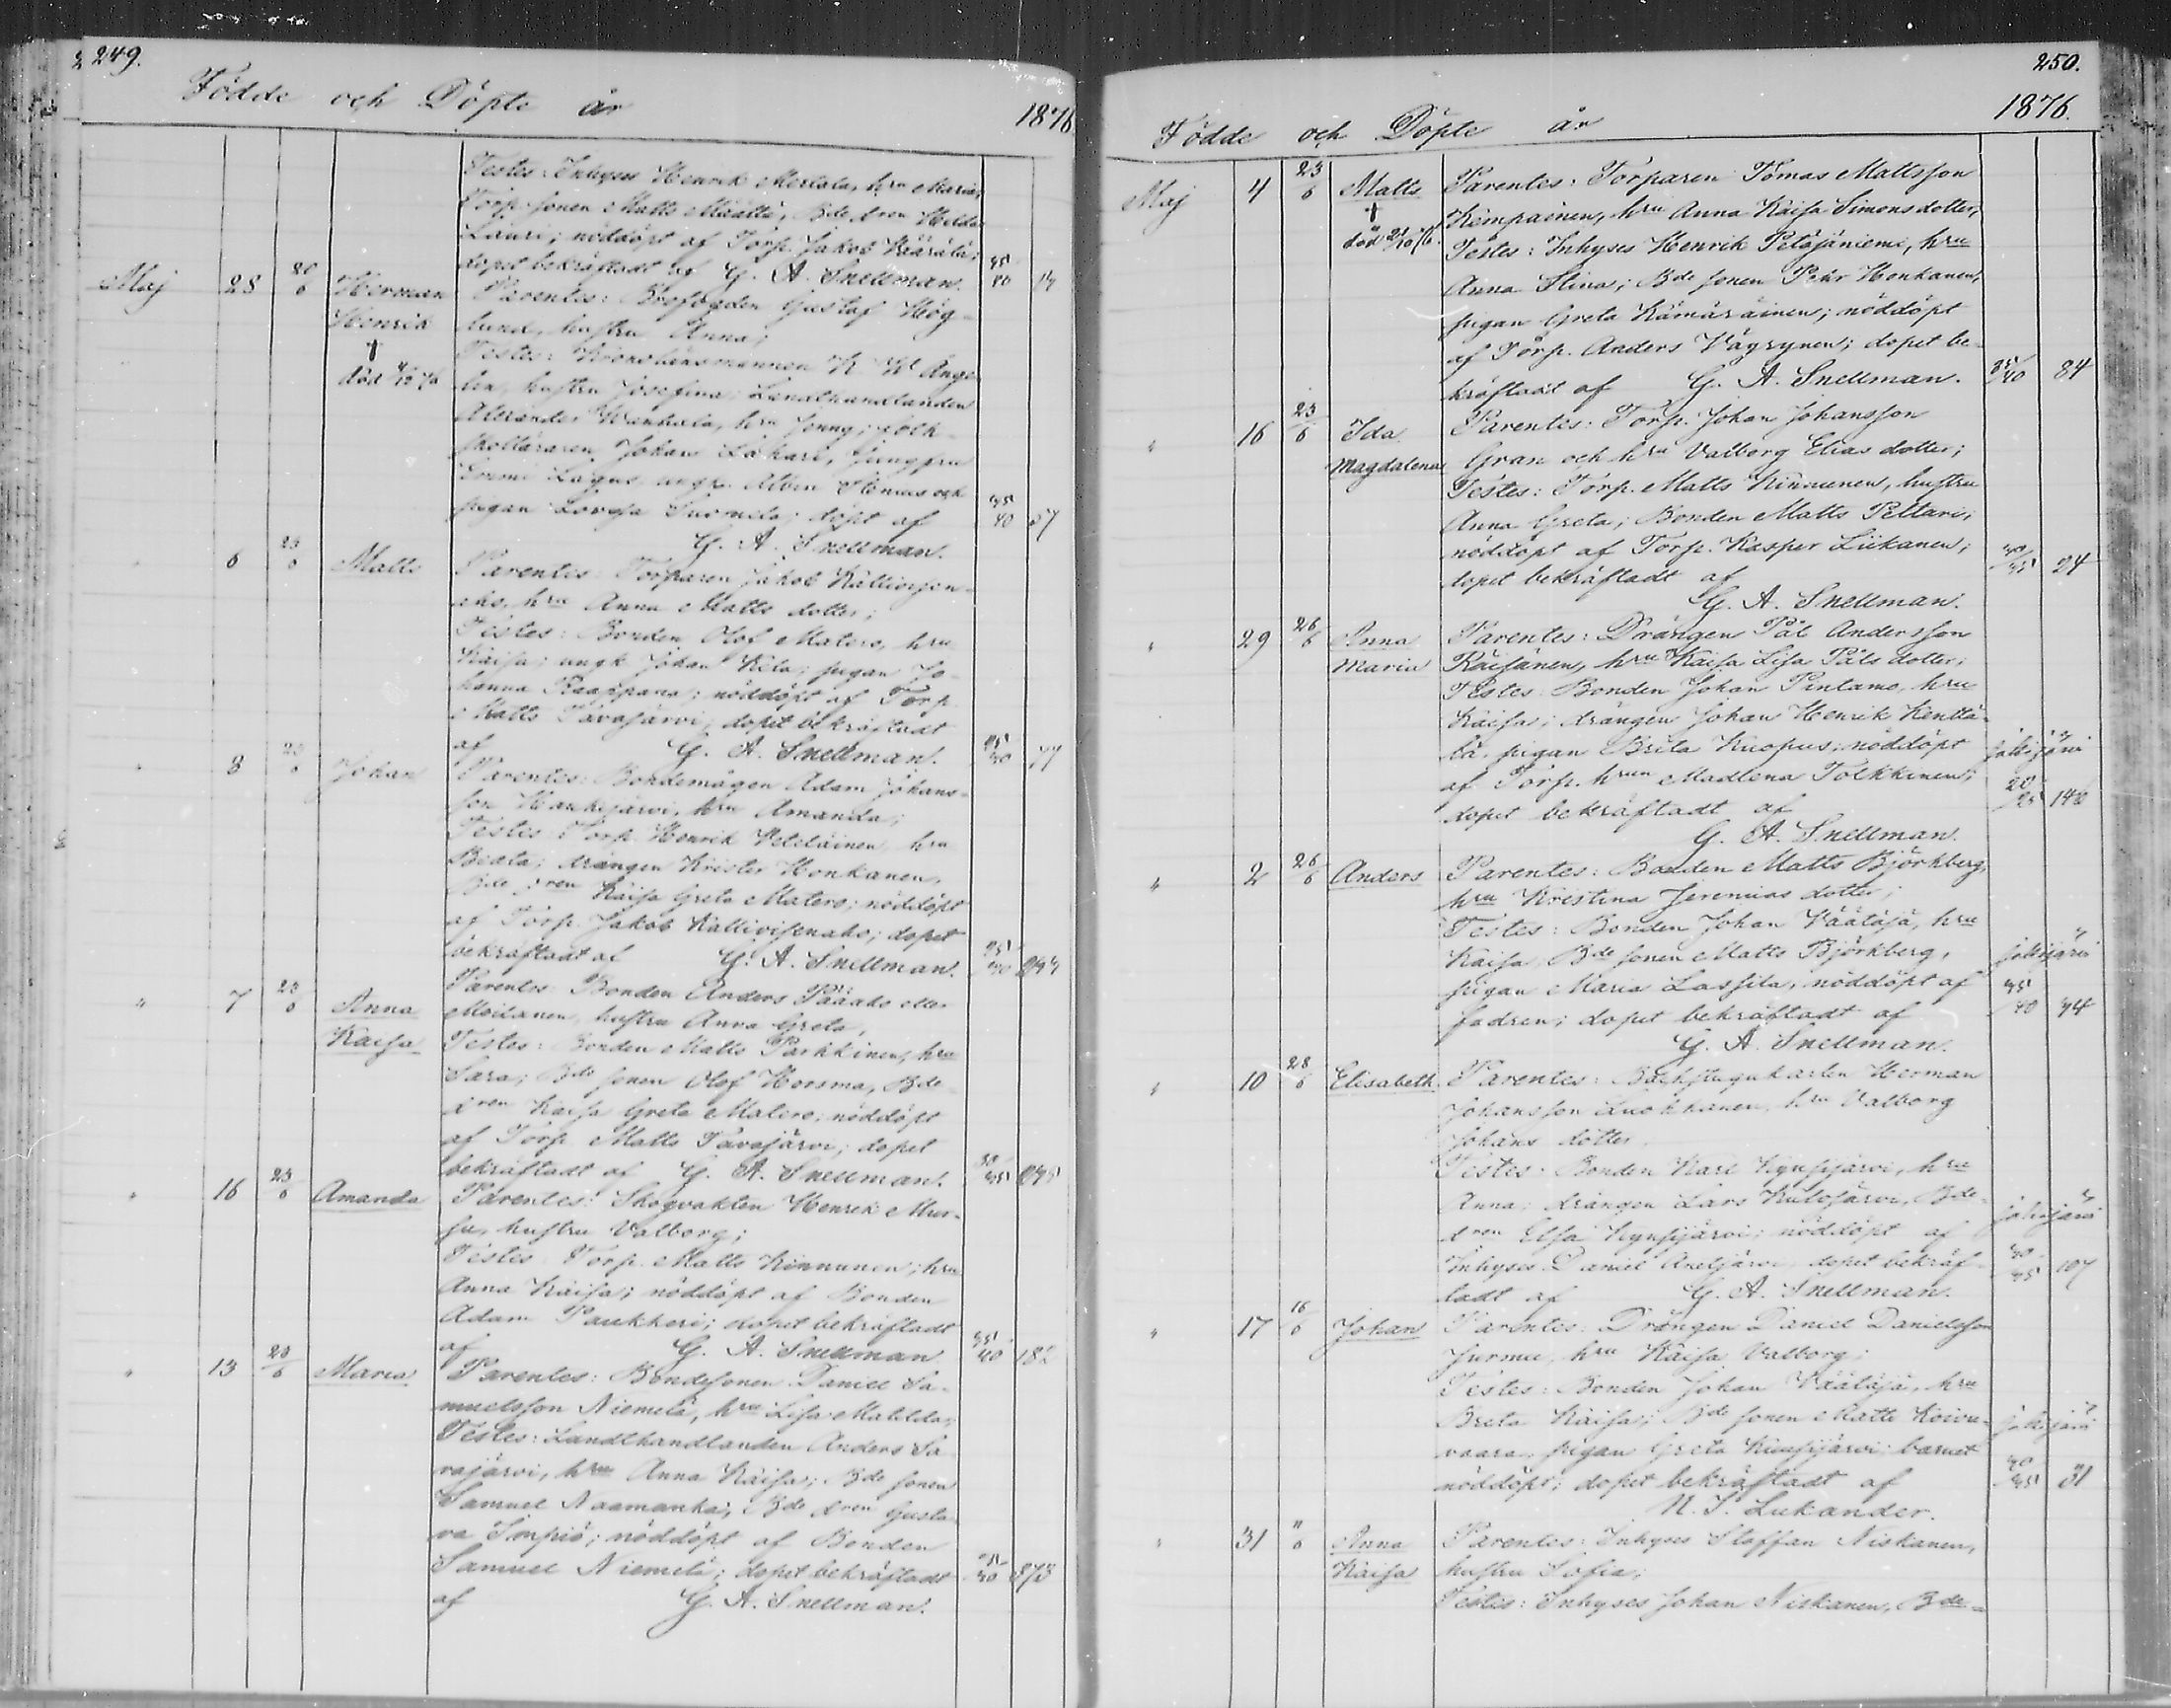 249.
Födde och Döpte år 1876
Testes: Inhyses Henrik Mertala, hru Maria,
Torp. sonen Matts Määttä, Bde dren Helda
Lauri; nöddöpt af Torp. Jakob Väärälä;
dopet bekräftadt af G. A. Snellman. 35/40 14
Maj 28 20/6 Herman Parentes: Brofogden Gustaf Hög-
Henrik lund, hustru Anna;
† Testes: Kronolänsmannen K W Ange-
död hustru Josefina; Landthandlanden
Alexander Wanhala, hru Jenny; folk-
skolläraren Johan Lahari, Jungfru
Emmi Lagus, ungk. Albin Stenius och
pigan Lovisa Suomela; döpt af 35/40 57
G. A. Snellman.
" 6 23/6 Matts Parentes: Torparen Jakob Kalliosen-
aho, hru Anna Matts dotter;
Testes: Bonden Olof Matero, hru
Kaisa; ungk. Johan Kela; pigan Jo-
hanna Raappana; nöddöpt af Torp.
Matts Tavajärvi; dopet bekräftadt
af G. A. Snellman. 35/40 77
" 8 23/6 Johan Parentes: Bondemågen Adam Johans-
son Haukijärvi, hru Amanda;
Testes: Torp. Henrik Veteläinen, hru
Beata; drängen Krister Honkanen,
Bde dren Kaisa Greta Matero; nöddöpt
af Torp. Jakob Kallioisenaho; dopet
bekräftadt af G. A. Snellman. 35/40
" 7 23/6 Anna Parentes: Bonden Anders Pääaho eller
Kaisa Moilanen, hustru Anna Greta,
Testes: Bonden Matts Parkkinen, hru
Sara; Bde sonen Olof Horsma, Bde
dren Kaisa Greta Matero; nöddöpt
af Torp. Matts Tavajärvi; dopet
bekräftadt af G. A. Snellman. 30/35
" 16 23/6 Amanda Parentes: Skogvakten Henrik Mur-
su, hustru Valborg;
Testes: Torp. Matts Kinnunen, hru
Anna Kaisa; nöddöpt af Bonden
Adam Paukkeri; dopet bekräftadt
af G. A. Snellman 35/40 182
" 13 23/6 Maria Parentes: Bondesonen Daniel Sa-
muelsson Niemelä, hru Lisa Matilda;
Testes: Landthandlanden Anders Sa-
rajärvi, hru Anna Kaisa; Bde sonen
Samuel Naamanka, Bde dren Gusta-
va Simpiö; nöddöpt af Bonden
Samuel Niemelä; dopet bekräftadt 35/40 873
af G. A. Snellman.
250.
Födde och Döpte år 1876.
Maj 4 23/6 Matts Parentes: Torparen Tomas Mattsson
† Kemppainen, hru Anna Kaisa Simonsdotter,
död 21/10 76. Testes: Inhyses Henrik Petäjäniemi, hru
Anna Stina; Bde sonen Pehr Honkanen,
pigan Greta Kämäräinen; nöddöpt
af Torp. Anders Väyrynen; dopet be-
kräftadt af G. A. Snellman. 35/40 84
" 16 23/6 Ida Parentes: Torp. Johan Johansson
Magdalena Gran och hru Valborg Elias dotter;
Testes: Torp. Matts Kinnunen, hustru
Anna Greta; Bonden Matts Peltari;
nöddöpt af Torp. Kasper Liikanen; 30/35 24
dopet bekräftadt af
G. A. Snellman.
" 29 26/6 Anna Parentes: Drängen Pål Andersson
Maria Räisänen, hru Kaisa Lisa Påls dotter;
Testes: Bonden Johan Pintamo, hru
Kaisa; drängen Johan Henrik Kenttä-
lä, pigan Brita Kuopus; nöddöpt Jokijärvi
af Torp. hrun Madlena Tolkkinen; 20/25 140
dopet bekräftadt af
G. A. Snellman.
" 2 26/6 Anders Parentes: Bonden Matts Björkberg,
hru Kristina Jeremias dotter;
Testes: Bonden Johan Väätäjä, hru
Kaisa, Bde sonen Matts Björkberg, Jokijärvi
pigan Maria Lassila, nöddöpt af 35/40 44
fadren; dopet bekräftadt af
G. A. Snellman.
" 10 28/6 Elisabeth Parentes: Backstugukarlen Herman
Johansson Luokkanen, hru Valborg
Johans dotter.
Testes: Bonden Karl Kynsijärvi, hru
Anna; drängen Lars Kulojärvi, Bde-
dren Elsa Kynsijärvi; nöddöpt af Jokijärvi
Inhyses Daniel Axeljärvi; dopet bekräf- 40/45 107
tadt af G. A. Snellman.
" 17 16/6 Johan Parentes: Drängen Daniel Danielsson
Jurmu, hru Kaisa Valborg;
Testes: Bonden Johan Väätäjä, hru
Breta Kaisa; Bde sonen Matts Koivu- Jokijärvi
vaara, pigan Greta Kynsijärvi; barnet
nöddöpt; dopet bekräftadt af 40/45 31
N. J. Lukander.
" 31 11/6 Anna Parentes: Inhyses Staffan Niskanen,
Kaisa hustru Sofia;
Testes: Inhyses Johan Niskanen, Bde-